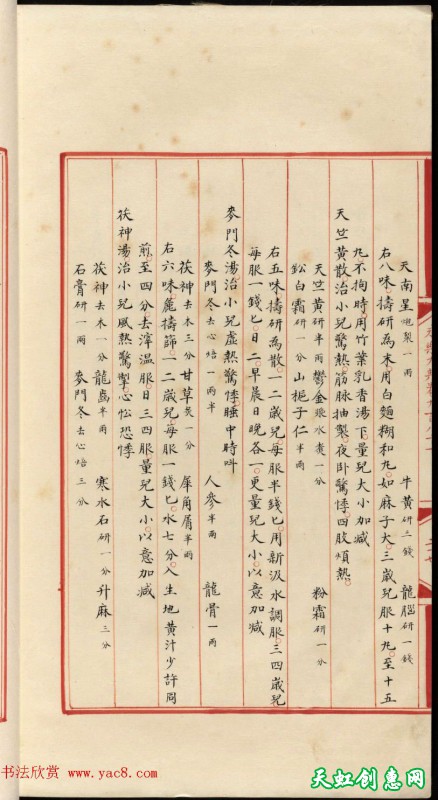 天南星炮製一兩 牛黃研二錢 龍腦研一錢
右八味擣研為末用白麵糊和丸如麻子大三歲兒服十丸至十五
丸不拘時用竹葉乳香湯下量兒大小加減
天竺黃散治小兒驚熱筋脉抽掣夜卧驚悸四肢煩熱
天竺黃研半兩 鬱金漿水煑一分 粉霜研一分
鈆白霜研一分 山梔子仁半兩
右五味擣研為散一二歲兒每服半錢匕用新汲水調服三四歲兒
每服一錢匕日二早晨日晚各一更量兒大小以意加減
麥門冬湯治小兒虛熱驚悸睡中時叫
麥門冬去心焙一兩半 人參半兩 龍骨一兩
茯神去木三分 甘草炙一分 犀角屑半兩
右六味麄擣篩一二歲兒每服一錢匕水七分入生地黃汁少許同
煎至四分去滓温服日三四服量兒大小以意加減
茯神湯治小兒風熱驚掣心忪恐悸
茯神去木一分 龍齒半兩 寒水石研一分 升麻三分
石膏研一兩 麥門冬去心焙三分
书法欣赏 www.yac8.com
天虹创意网